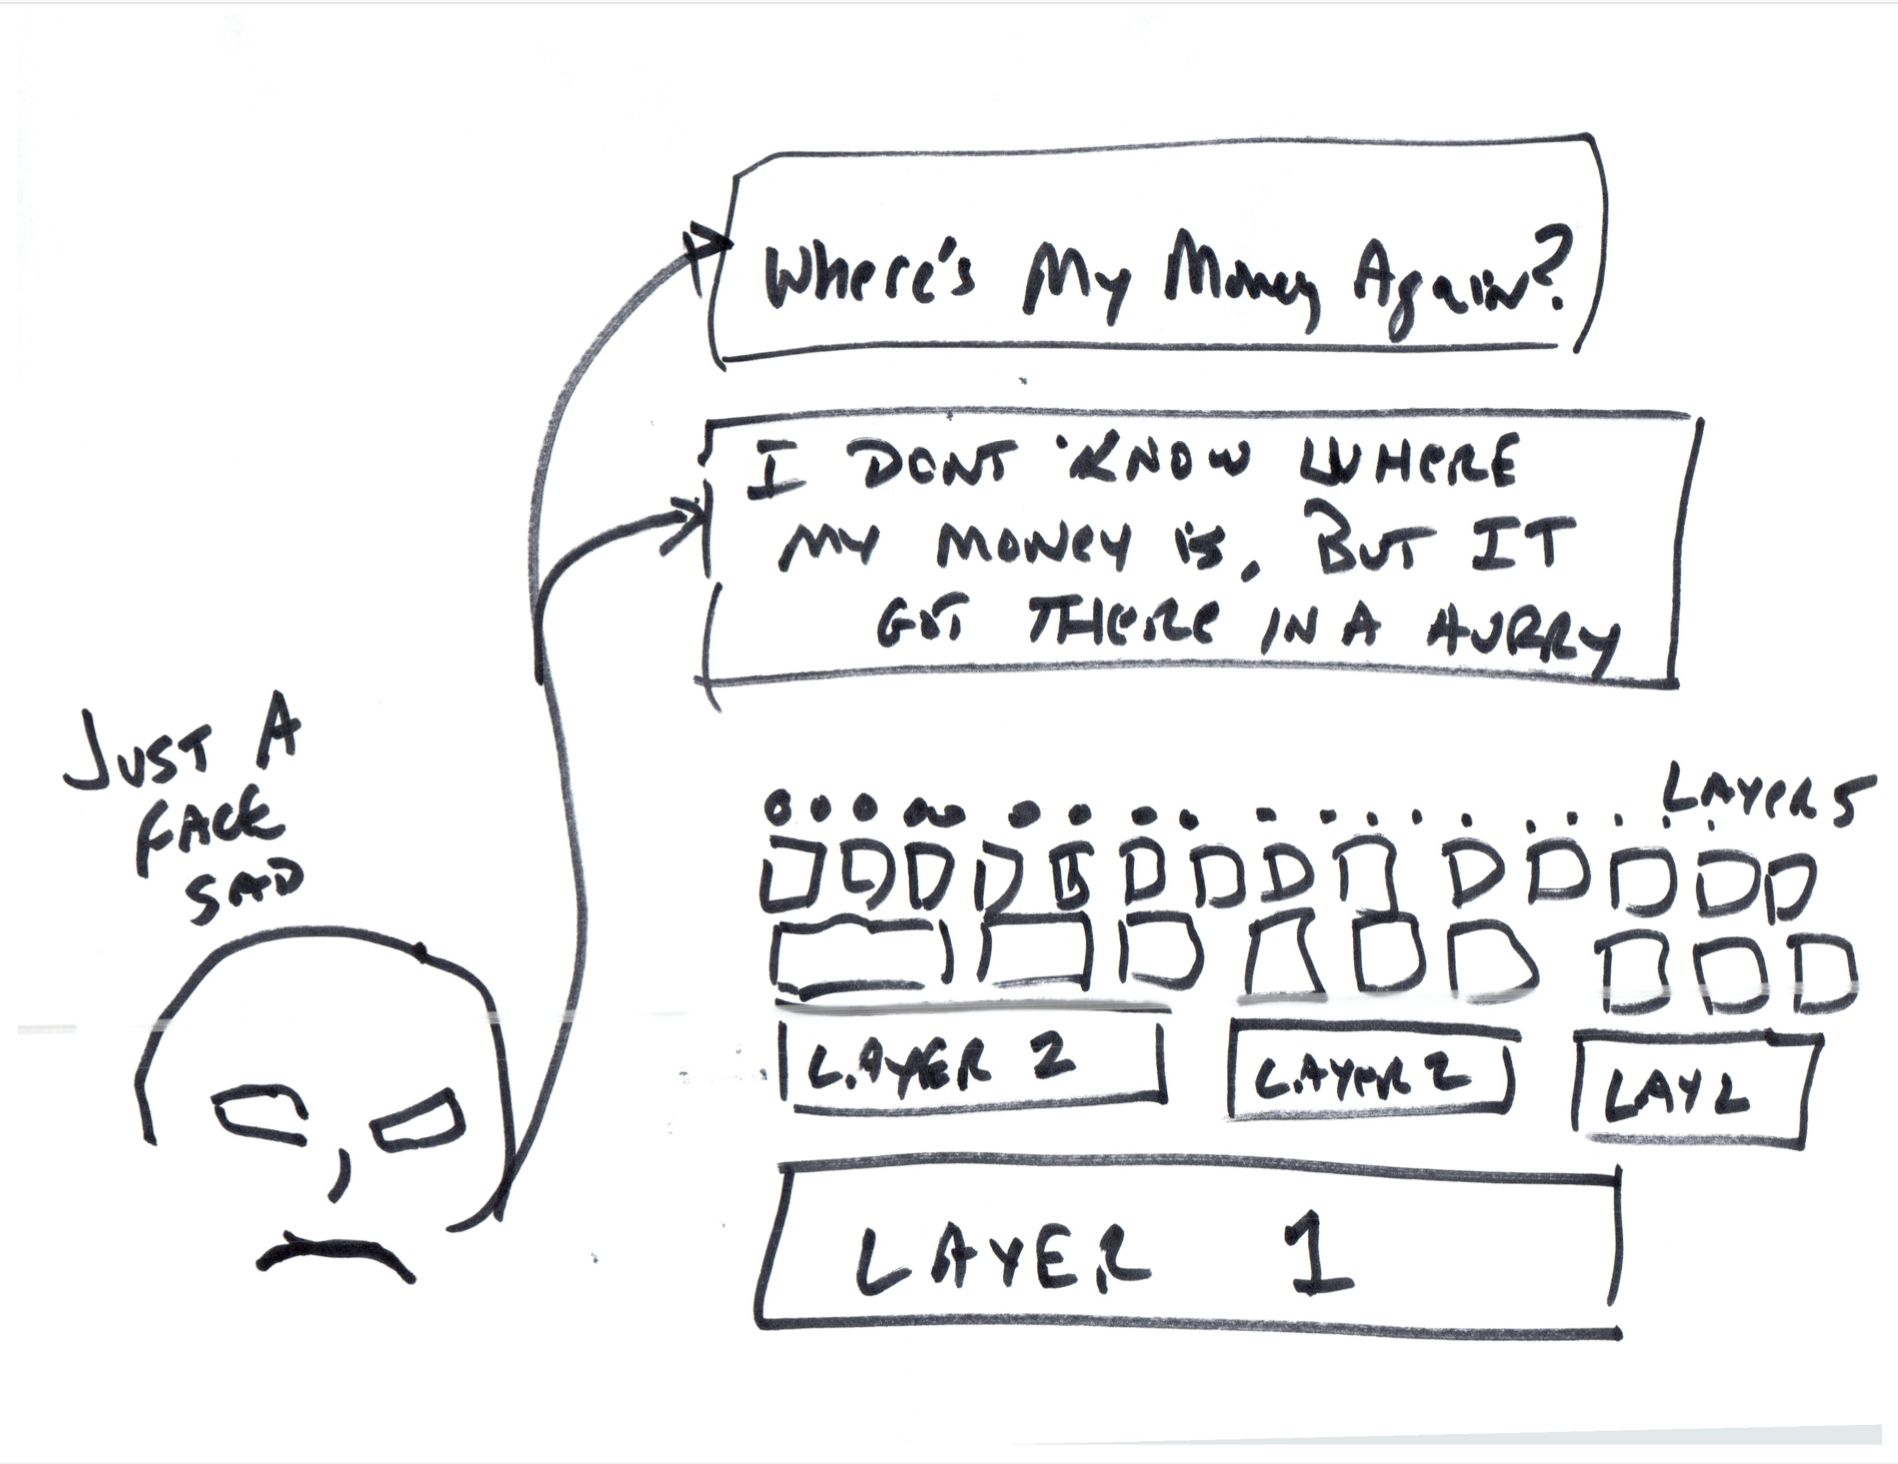 Where's My Money Again?
I DONT KNOW WHERE
MY MONEY is, BUT IT
GOT THERE IN A HURRY
JUST A
FACE
SAD
LAYER 5
LAYER 2
LAYER 2
LAY 2
LAYER 1